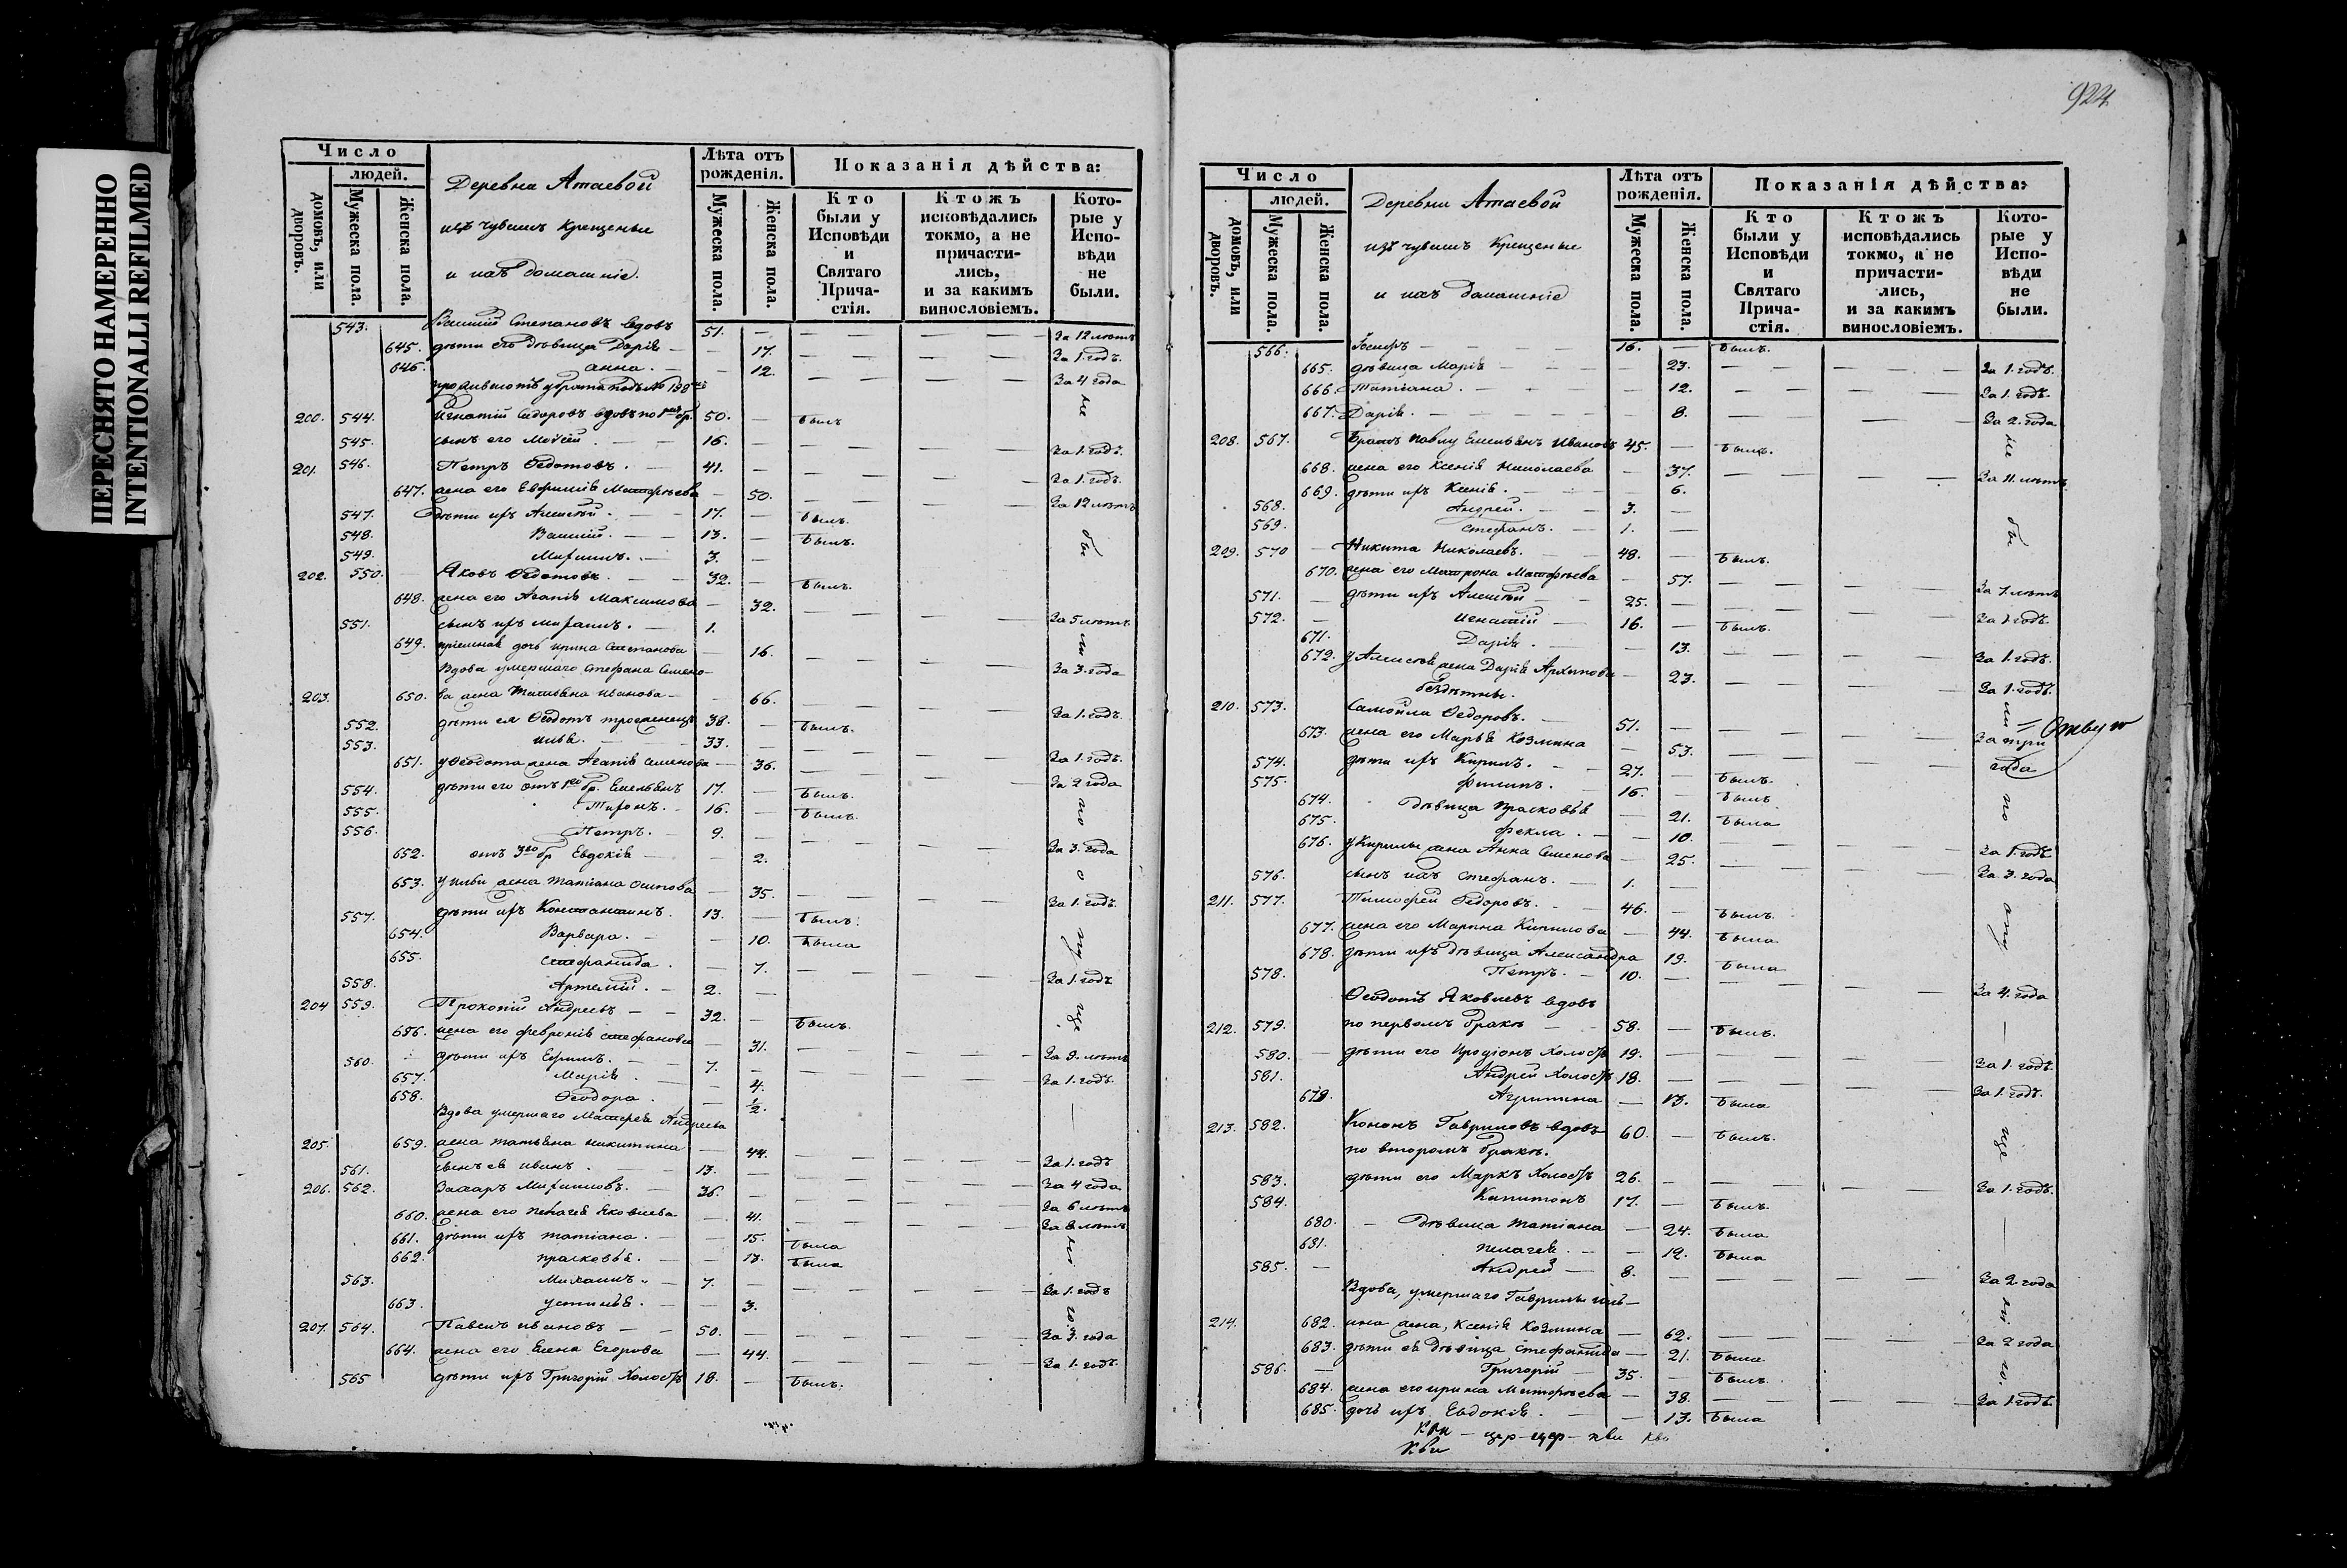 ПЕРЕСНЯТО НАМЕРЕННО
INTENTIONALLI REFILMED
Число
людей.
домовъ, или дворовъ.
Мужеска пола.
Женска пола.
Деревна Атаевой
изъ чувашъ Крещеныи
и ихъ домашніе.
Лѣта отъ рожденія.
Мужеска пола.
Женска пола.
Показанія дѣйства:
Кто были у Исповѣди и Святаго Прича- стія.
Ктожъ исповѣдались токмо, а не причасти- лись, и за какимъ винословіемъ.
Кото- рые у Испо- вѣди не были.
543. Василій Степановъ вдовъ 51. — За 12 лѣтъ
645. дѣти его дѣвица Дарія — 17. — За 1. годъ.
646. анна. — 12. — За 4 года
проживаютъ у брата подъ № 198
200. 544. Игнатій Сидоровъ вдовъ по 1 бр. 50. — былъ
545. сынъ его Моисей. — 16. — За 1. годъ.
201. 546. Петръ Ѳедотовъ. — 41. — За 1. годъ.
647. жена его Евфимія Матфѣева — 50. — За 12 лѣтъ
547. дѣти ихъ Алексѣй. — 17. — былъ.
548. Василій. — 13. — былъ.
549. Михаилъ. — 3. —
202. 550. Яковъ Ѳедотовъ. — 32. — былъ.
648. жена его Агапія Максимова — 32. — За 5 лѣтъ.
551. сынъ ихъ Михаилъ. — 1.
649. пріемная дочь ирина Степанова — 16. — За 3. года
Вдова умершаго Стефана Семено-
203. 650. ва жена Татьяна Иванова — 66. — За 1. годъ.
552. дѣти ея Ѳеодотъ троеженецъ 38. — былъ.
553. илья. — 33. — За 1. годъ.
651. у Ѳеодота жена Агапія Семенова — 36. — За 2 года
554. дѣти его отъ 1го бр. Емельянъ 17. — былъ.
555. Тихонъ. — 16. — былъ.
556. Петръ. — 9. — За 3. года
652. отъ 3го бр Евдокія — 2.
653. у ильи жена Татіана Осипова — 35. — За 1. годъ.
557. дѣти ихъ Константинъ. 13. — былъ.
654. Варвара. — 10. была
655. Стефанида. — 7. — За 1. годъ
558. Артемій. — 2. —
204 559. Прокопій Андреевъ — 32. — былъ.
686. жена его февронія Стефанова — 31. — За 9. лѣтъ
560. дѣти ихъ Ефимъ. — 7. — За 1. годъ.
657. Марія. — 4.
658. Ѳеодора. — ½.
Вдова умершаго Матфея Андреева
205. 659. жена татьяна никитина — 44. — За 1. годъ
561. сынъ ея иванъ. — 13. — За 4 года
206. 562. Захаръ Михаиловъ. — 36. — За 6 лѣтъ
660. жена его пелагея Яковлева — 41. — За 8 лѣтъ
661. дѣти ихъ татіана. — 15. была
662. прасковья. — 13. была
563. Михаилъ. — 7. — За 1. годъ
663. устинья. — 3.
207. 564. Павелъ ивановъ — 50. — За 3. года
664. жена его Елена Егорова — 44. — За 1. годъ.
565 дѣти ихъ Григорій Холостъ 18. — былъ.
924
Число
людей.
домовъ, или дворовъ.
Мужеска пола.
Женска пола.
Деревни Атаевой
изъ чувашъ Крещеныи
и ихъ домашніе
Лѣта отъ рожденія.
Мужеска пола.
Женска пола.
Показанія дѣйства:
Кто были у Исповѣди и Святаго Прича- стія.
Ктожъ исповѣдались токмо, а не причасти- лись, и за какимъ винословіемъ.
Кото- рые у Испо- вѣди не были.
566. Іосифъ — 16. — былъ.
665. дѣвица Марія — 23. — За 1. годъ.
666. Татіана. — 12. — За 1. годъ.
667. Дарія. — 8. — За 2. года
208. 567. Братъ павлу Емельянъ Ивановъ 45. — былъ.
668. жена его Ксенія Николаева — 37. — За 11. лѣтъ.
669. дѣти ихъ Ксенія. — 6.
568. Андрей. — 3. —
569. Стефанъ. — 1. —
209. 570 Никита Николаевъ. — 48. — былъ.
670. жена его Матрона Матфѣева — 57. — За 7. лѣтъ
571. дѣти ихъ Алексѣй 25. — За 1. годъ.
572. игнатій — 16. — былъ.
671. Дарія. — 13. — За 1. годъ.
672. у Алексѣя жена Дарія Архипова — 23. — За 1. годъ.
бездѣтны.
210. 573. Самойла Ѳедоровъ. — 51. — За три года
673. жена его Марья Козмина — 53. —
574. дѣти ихъ Кирилъ. — 27. — былъ.
575. филипъ. — 16. — былъ
674. дѣвица Прасковья — 21. была
675. фекла. — 10. — За 1. годъ
676. у Кирилы жена Анна Семенова — 25. — За 3. года
576. сынъ ихъ Стефанъ. — 1. —
211. 577. Тимофей Ѳедоровъ. — 46. — былъ.
677. жена его Марина Кирилова — 44. была
678. дѣти ихъ дѣвица Александра 19. была
578. Петръ. — 10. — За 4. года
Ѳеодотъ Яковлевъ вдовъ
212. 579. по первомъ бракѣ — 58. — былъ.
580. дѣти его Иродіонъ Холостъ 19. — За 1. годъ.
581. Андрей Холостъ 18. — За 1. годъ.
679. Агрипина — 13. была
213. 582. Кононъ Гавриловъ вдовъ 60. — былъ.
по второмъ бракѣ.
583. дѣти его Маркъ Холостъ 26. — За 1. годъ.
584. Капитонъ 17. — былъ.
680. дѣвица татіана — 24. была
681. пелагея. — 12. была
585. Андрей — 8. — За 2. года
Вдова, умершаго Гаврилы
214. 682. ина жена, Ксенія Козмина — 62. — За 2 года
683. дѣти ея дѣвица Стефанида — 21. была
586. Григорій — 35. — былъ.
684. жена его ирина Матфѣева — 38. — За 1. годъ.
685. дочь ихъ Евдокія. — 13. была